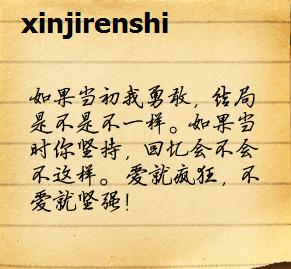 xinjirenshi
如果当初我勇敢，结局
是不是不一样。如果当
时你坚持，回忆会不会
不这样。爱就疯狂，不
爱就坚强！